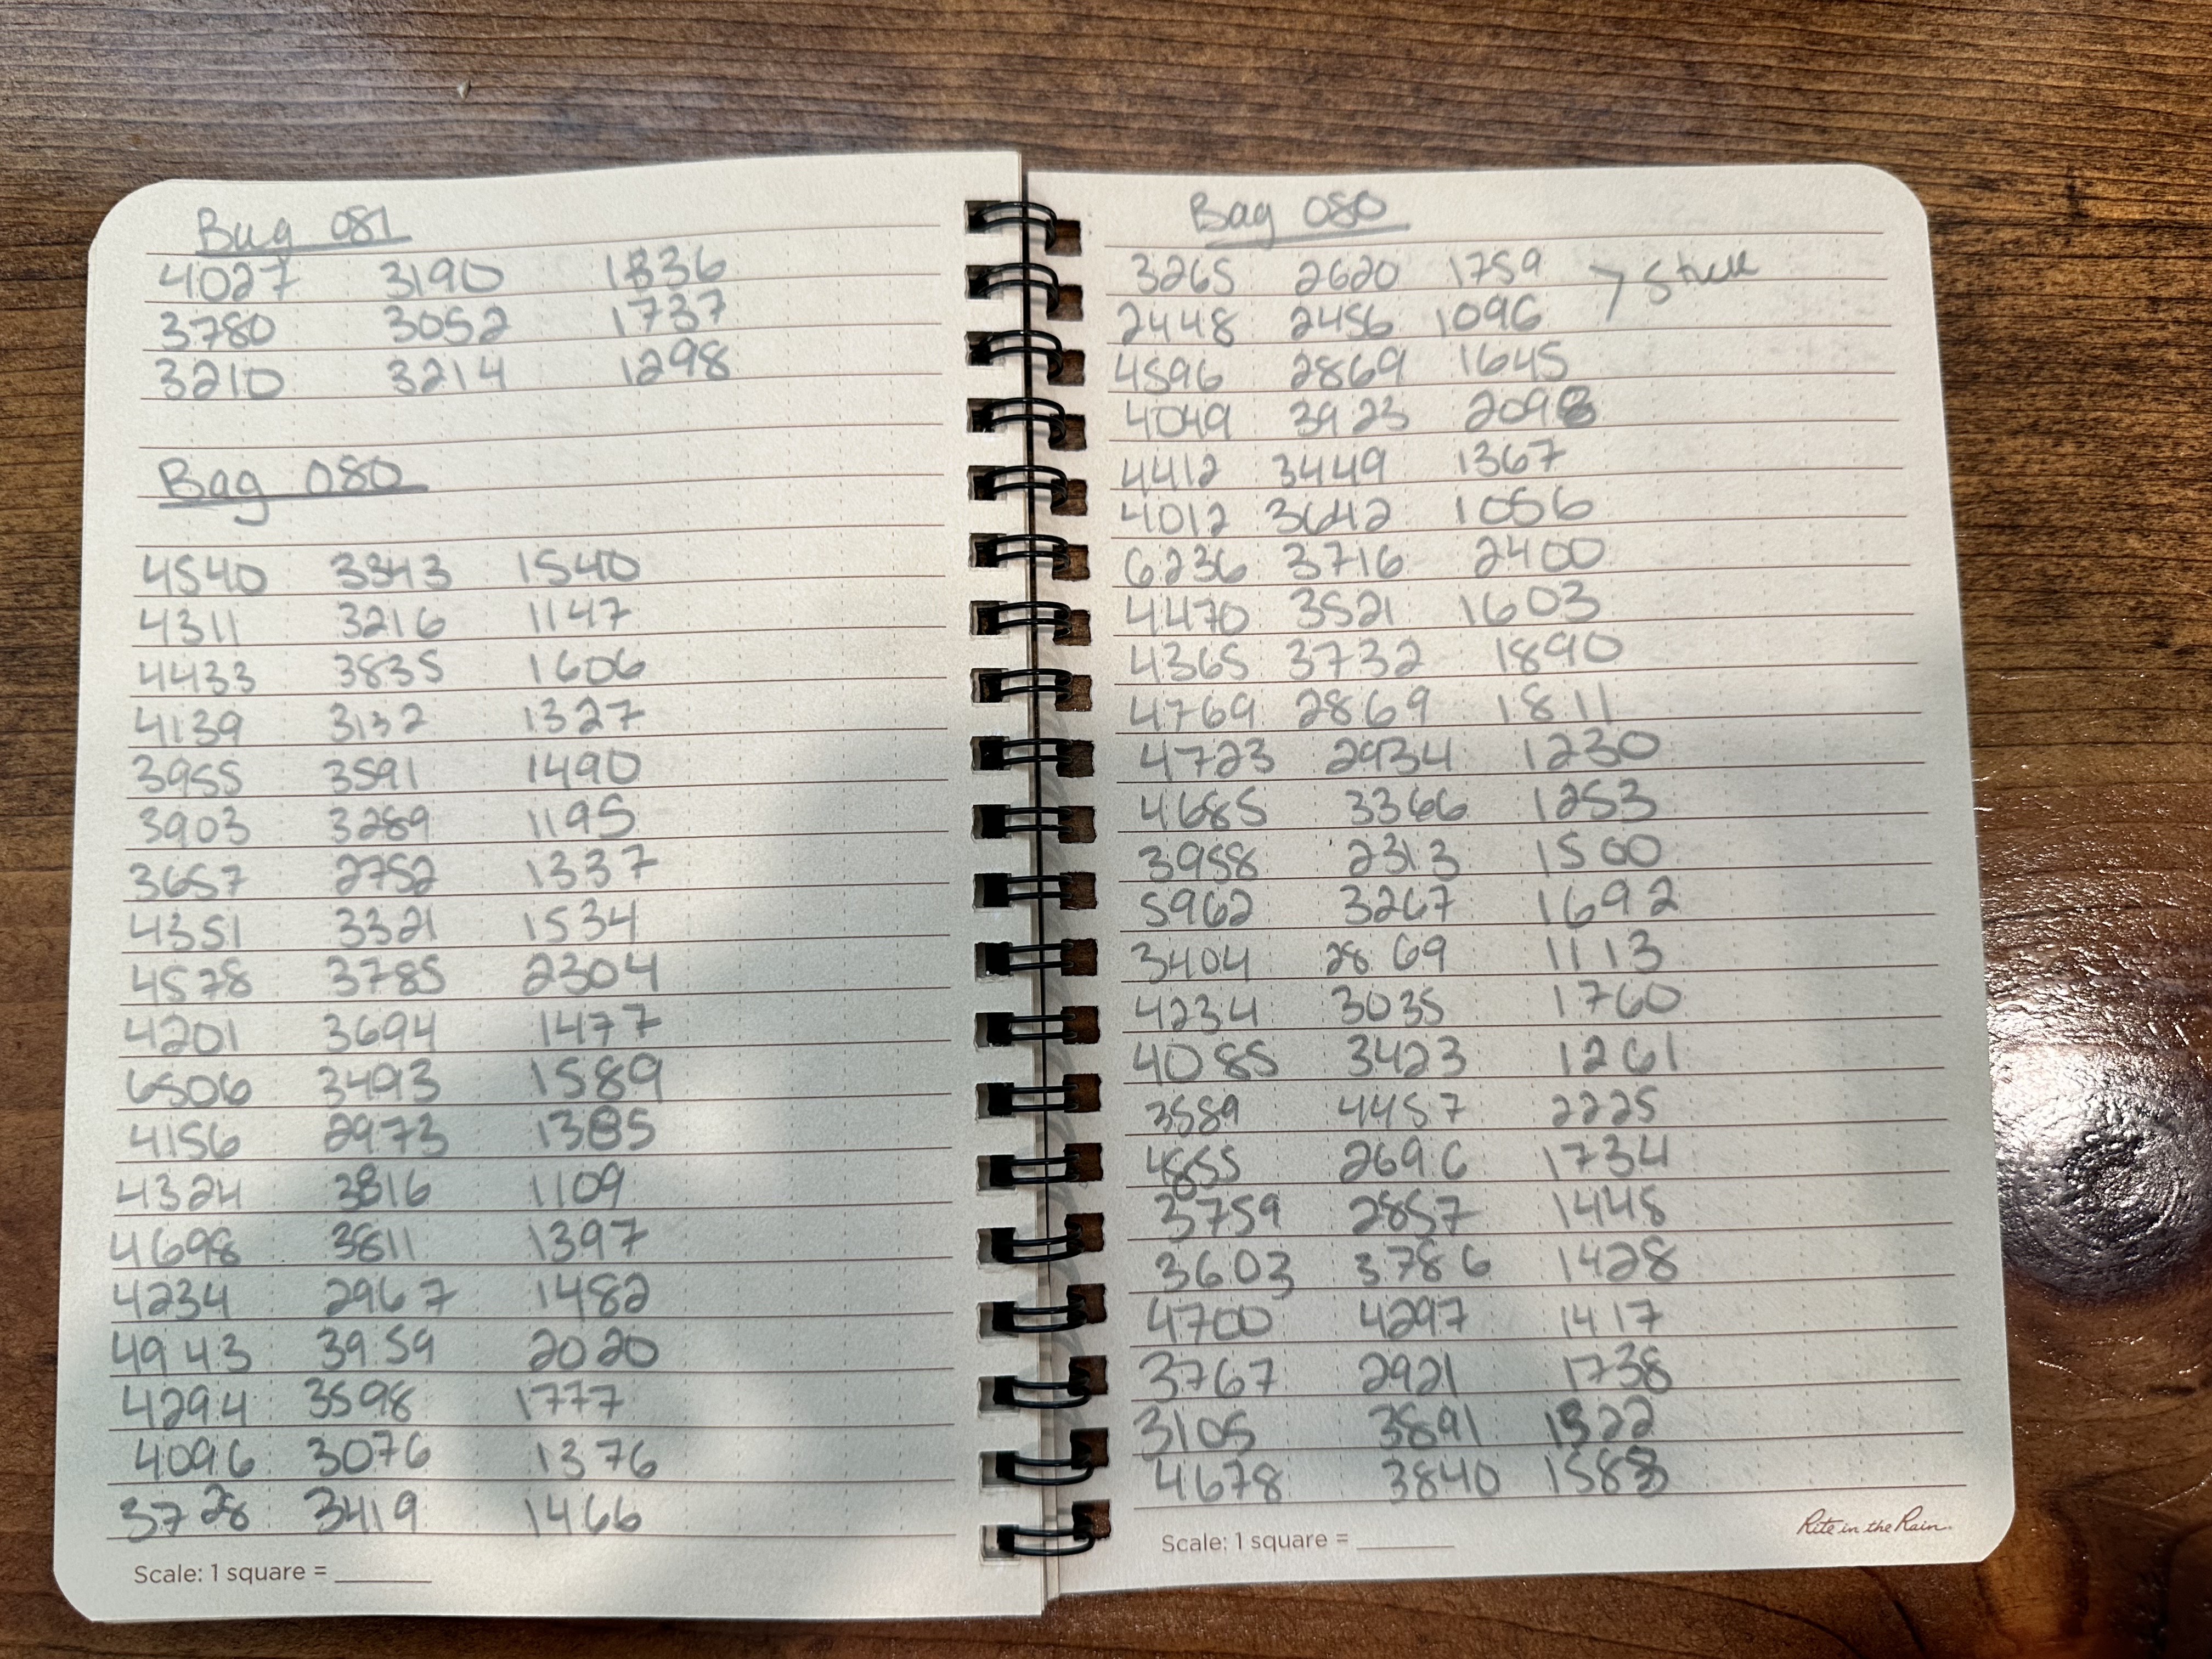 Bag 081
4027 3190 1836
3780 3052 1737
3210 3214 1298
Bag 082
4540 3943 1540
4311 3216 1147
4433 3835 1606
4139 3132 1327
3955 3591 1490
3903 3289 1195
3657 2752 1337
4351 3321 1534
4578 3785 2304
4201 3694 1477
6506 3493 1589
4156 2973 1385
4324 3816 1109
4698 3611 1397
4234 2967 1482
4943 3959 2020
4294 3598 1777
4096 3076 1376
3728 3419 1466
Scale: 1 square =
Bag 080
3265 2620 1759
2448 2456 1096
4596 2869 1645
4049 3923 2098
4412 3449 1367
4012 3642 1056
6236 3716 2400
4470 3521 1603
4365 3732 1890
4769 2869 1811
4723 2934 1230
4685 3366 1253
3958 2313 1500
5962 3267 1692
3404 2869 1113
4234 3035 1760
4085 3423 1261
3589 4457 2225
4655 2696 1734
3759 2857 1448
3603 3786 1428
4700 4297 1417
3767 2921 1738
3105 3891 1822
4678 3840 1583
Scale: 1 square =
Rite in the Rain